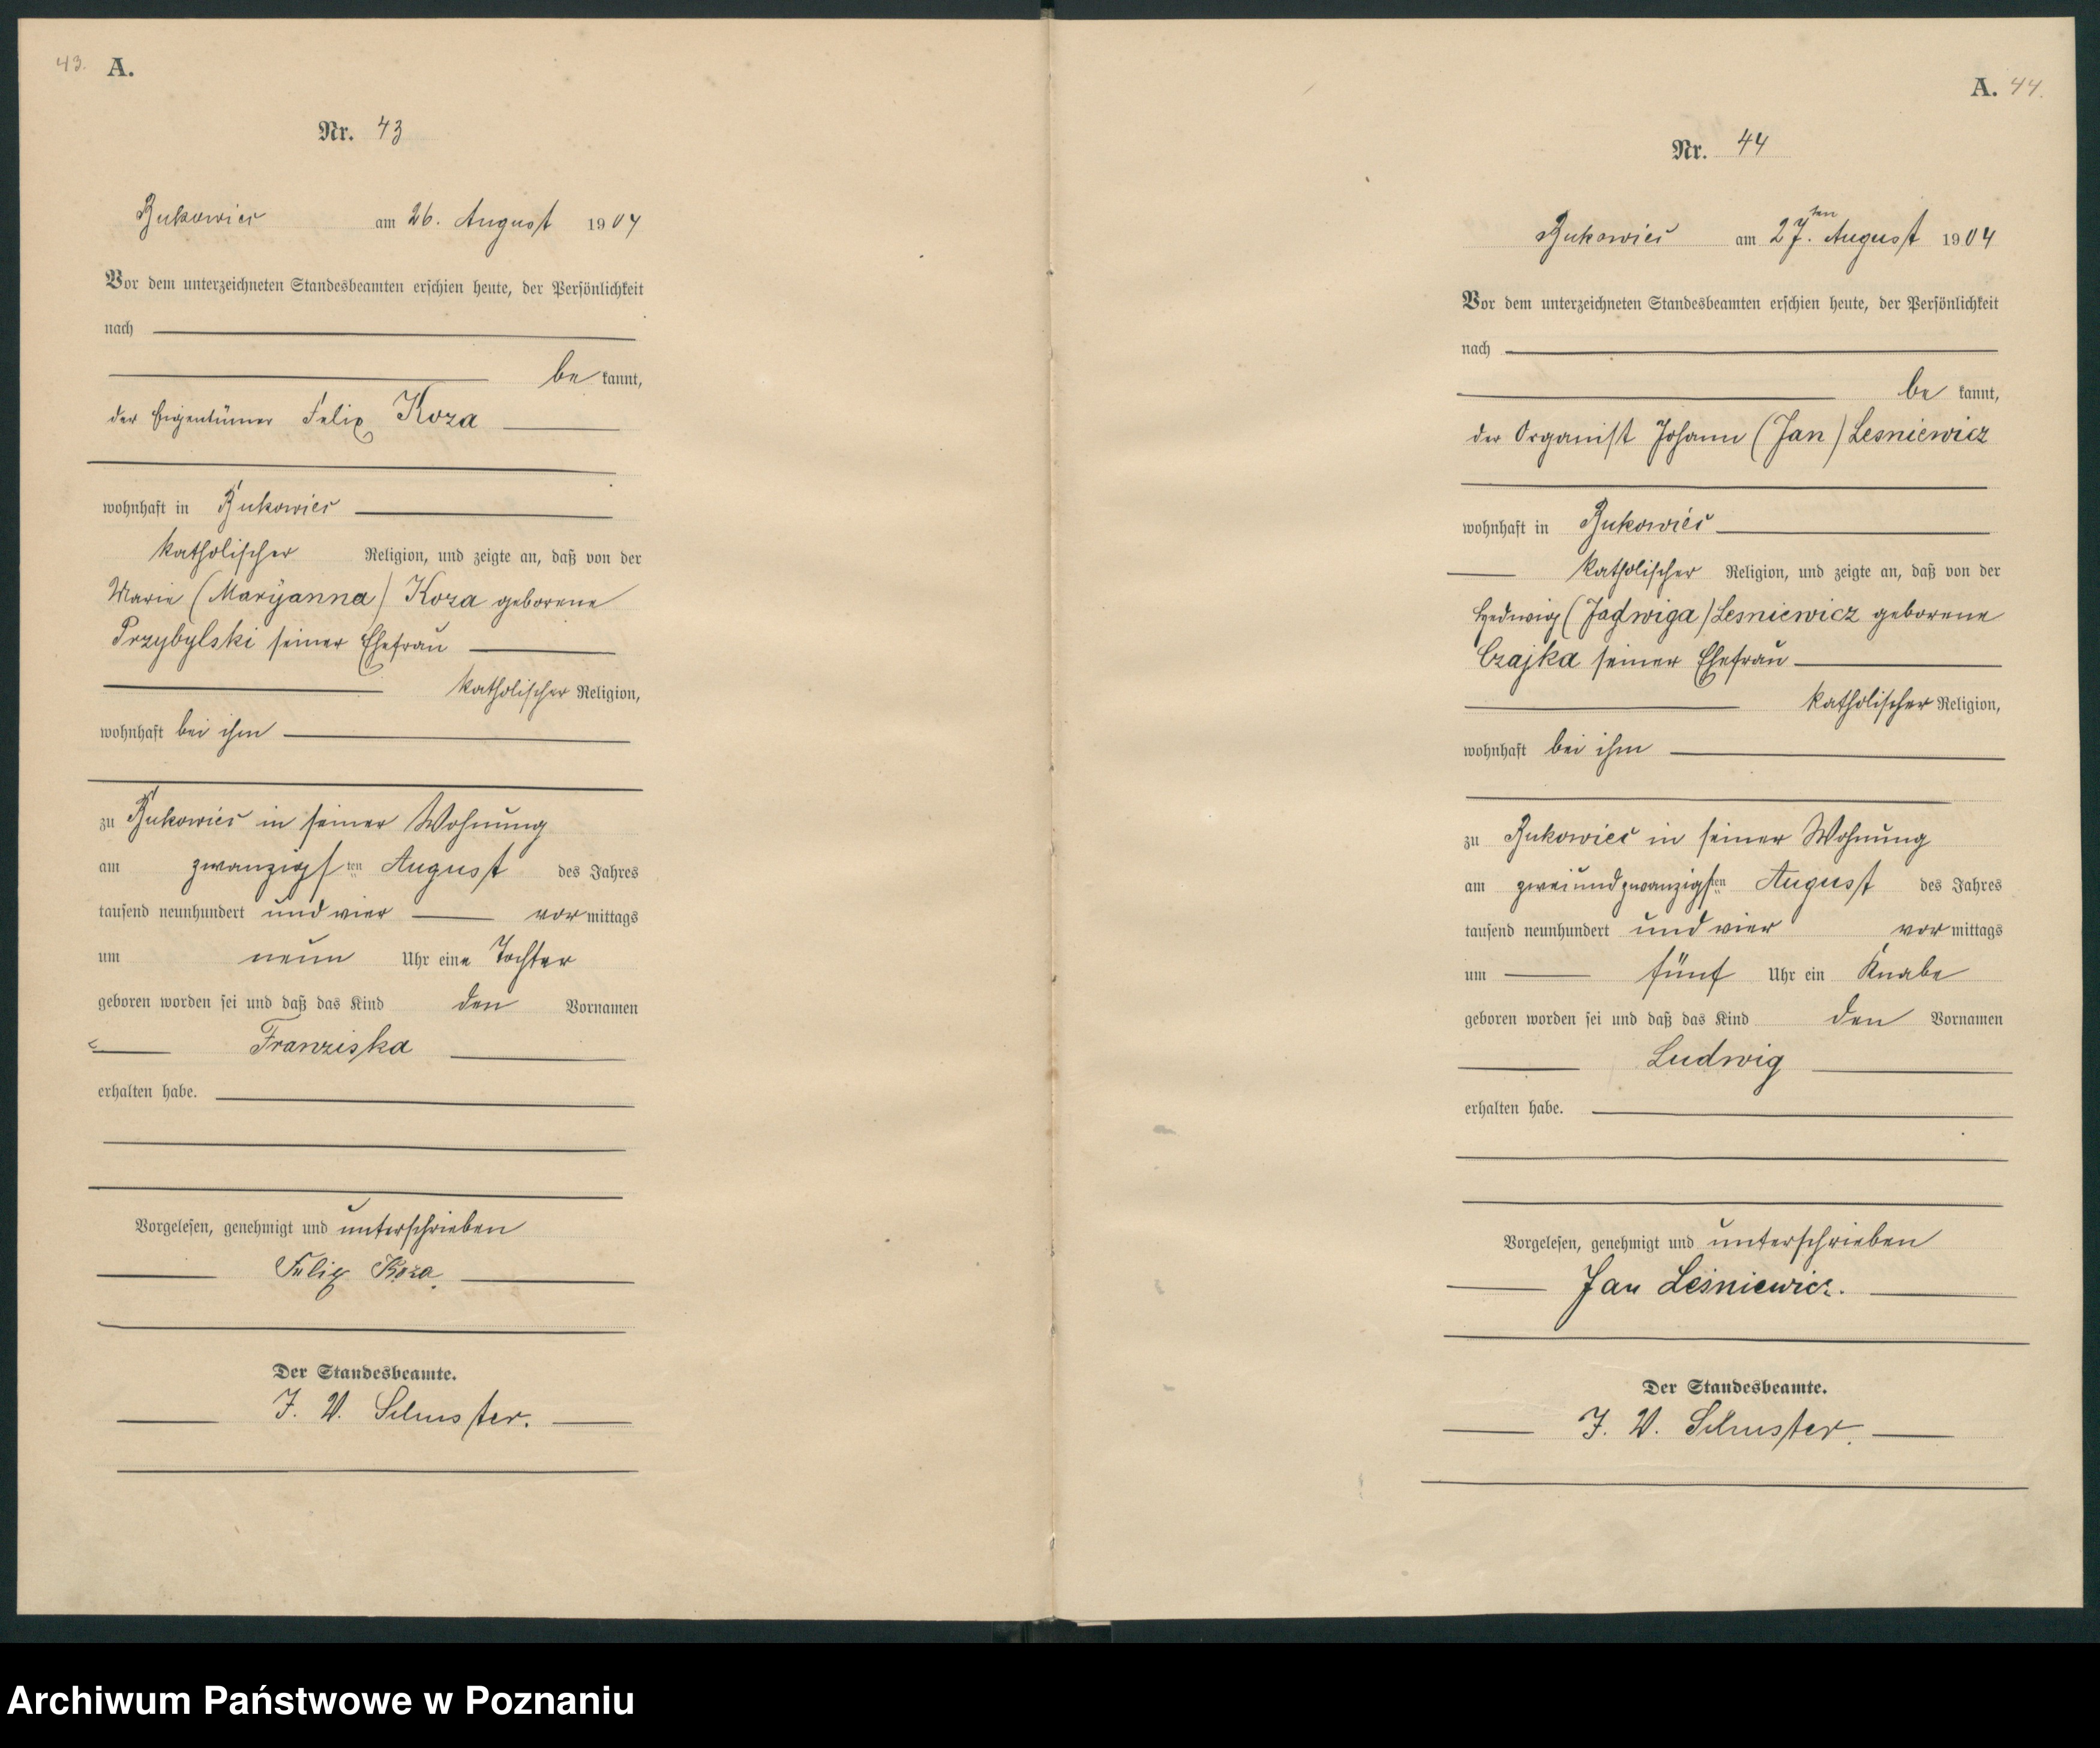 43. A.
Nr. 43
Bukowiec am 26. August 1904
Vor dem unterzeichneten Standesbeamten erschien heute, der Persönlichkeit
nach
be kannt,
der Eigentümer Felix Koza
wohnhaft in Bukowiec
katholischer Religion, und zeigte an, daß von der
Marie (Maryanna) Koza geborene
Przybylski seiner Ehefrau
katholischer Religion,
wohnhaft bei ihm
zu Bukowiec in seiner Wohnung
am zwanzigsten August des Jahres
tausend neunhundert und vier vor mittags
um neun Uhr eine Tochter
geboren worden sei und daß das Kind den Vornamen
Franziska
erhalten habe.
Vorgelesen, genehmigt und unterschrieben
Felix Koza.
Der Standesbeamte.
J. V. Schuster.
A. 44.
Nr. 44
Bukowiec am 27.ten August 1904
Vor dem unterzeichneten Standesbeamten erschien heute, der Persönlichkeit
nach
be kannt,
der Organist Johann (Jan) Lesniewicz
wohnhaft in Bukowiec
katholischer Religion, und zeigte an, daß von der
Hedwig (Jadwiga) Lesniewicz geborene
Czajka seiner Ehefrau
katholischer Religion,
wohnhaft bei ihm
zu Bukowiec in seiner Wohnung
am zweiundzwanzigsten August des Jahres
tausend neunhundert und vier vor mittags
um fünf Uhr ein Knabe
geboren worden sei und daß das Kind den Vornamen
Ludwig
erhalten habe.
Vorgelesen, genehmigt und unterschrieben
Jan Leśniewicz.
Der Standesbeamte.
J. V. Schuster.
Archiwum Państwowe w Poznaniu